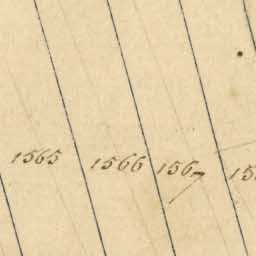 1565 1566 1567